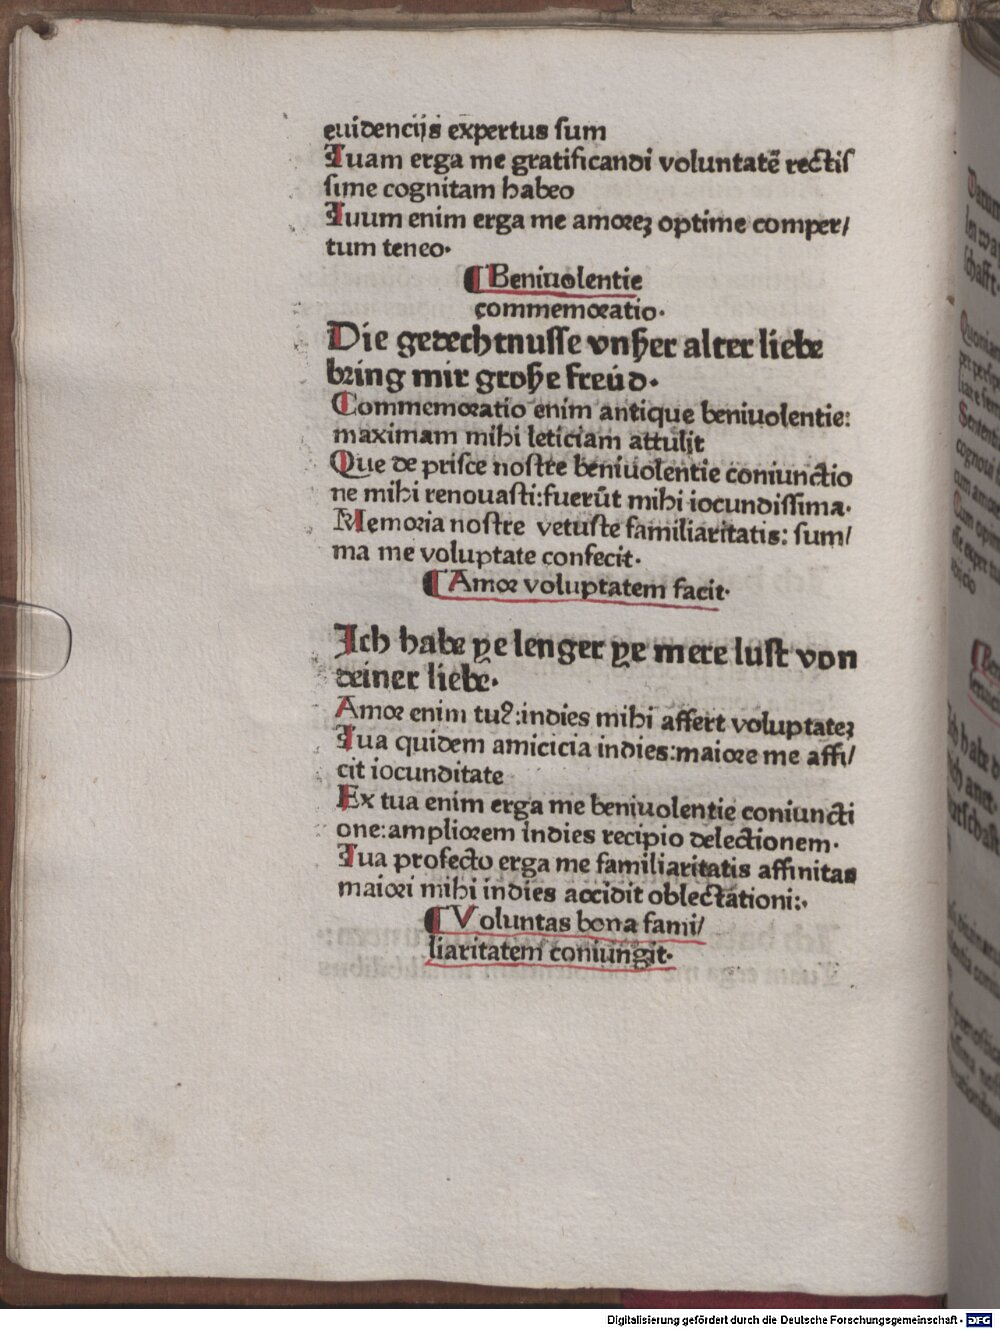 euidencijs expertus sum
Tuam erga me gratificandi voluntatē rectis
sime cognitam habeo
Tuum enim erga me amoreꝫ optime comper/
tum teneo.
¶ Beniuolentie
commemoratio.
Die gedechtnusse vnßer alter liebe
bring mir große freüd.
Commemoratio enim antique beniuolentie:
maximam mihi leticiam attulit
Que de prisce nostre beniuolentie coniunctio
ne mihi renouasti:fuerūt mihi iocundissima.
Memoria nostre vetuste familiaritatis: sum/
ma me voluptate confecit.
¶ Amor voluptatem facit.
Ich habe ye lenger ye mere lust von
deiner liebe.
Amor enim tuꝰ:indies mihi affert voluptateꝫ
Tua quidem amicicia indies:maiore me affi/
cit iocunditate
Ex tua enim erga me beniuolentie coniuncti
one:ampliorem indies recipio delectionem.
Tua profecto erga me familiaritatis affinitas
maiori mihi indies accidit oblectationi:.
¶ Voluntas bona fami/
liaritatem coniungit.
Digitalisierung gefördert durch die Deutsche Forschungsgemeinschaft - DFG